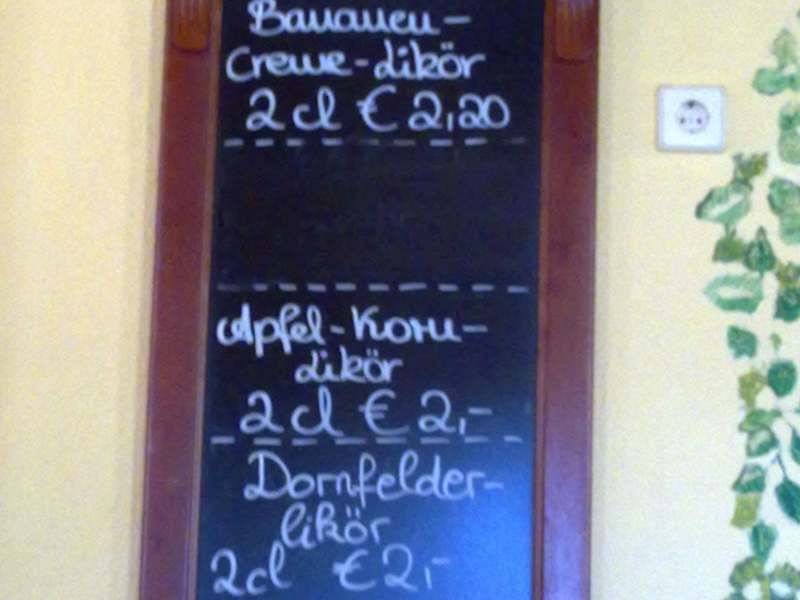 Bananen-
Creme-Likör
2 cl € 2,20
Apfel-Korn-
Likör
2 cl € 2,-
Dornfelder-
likör
2cl € 2,-